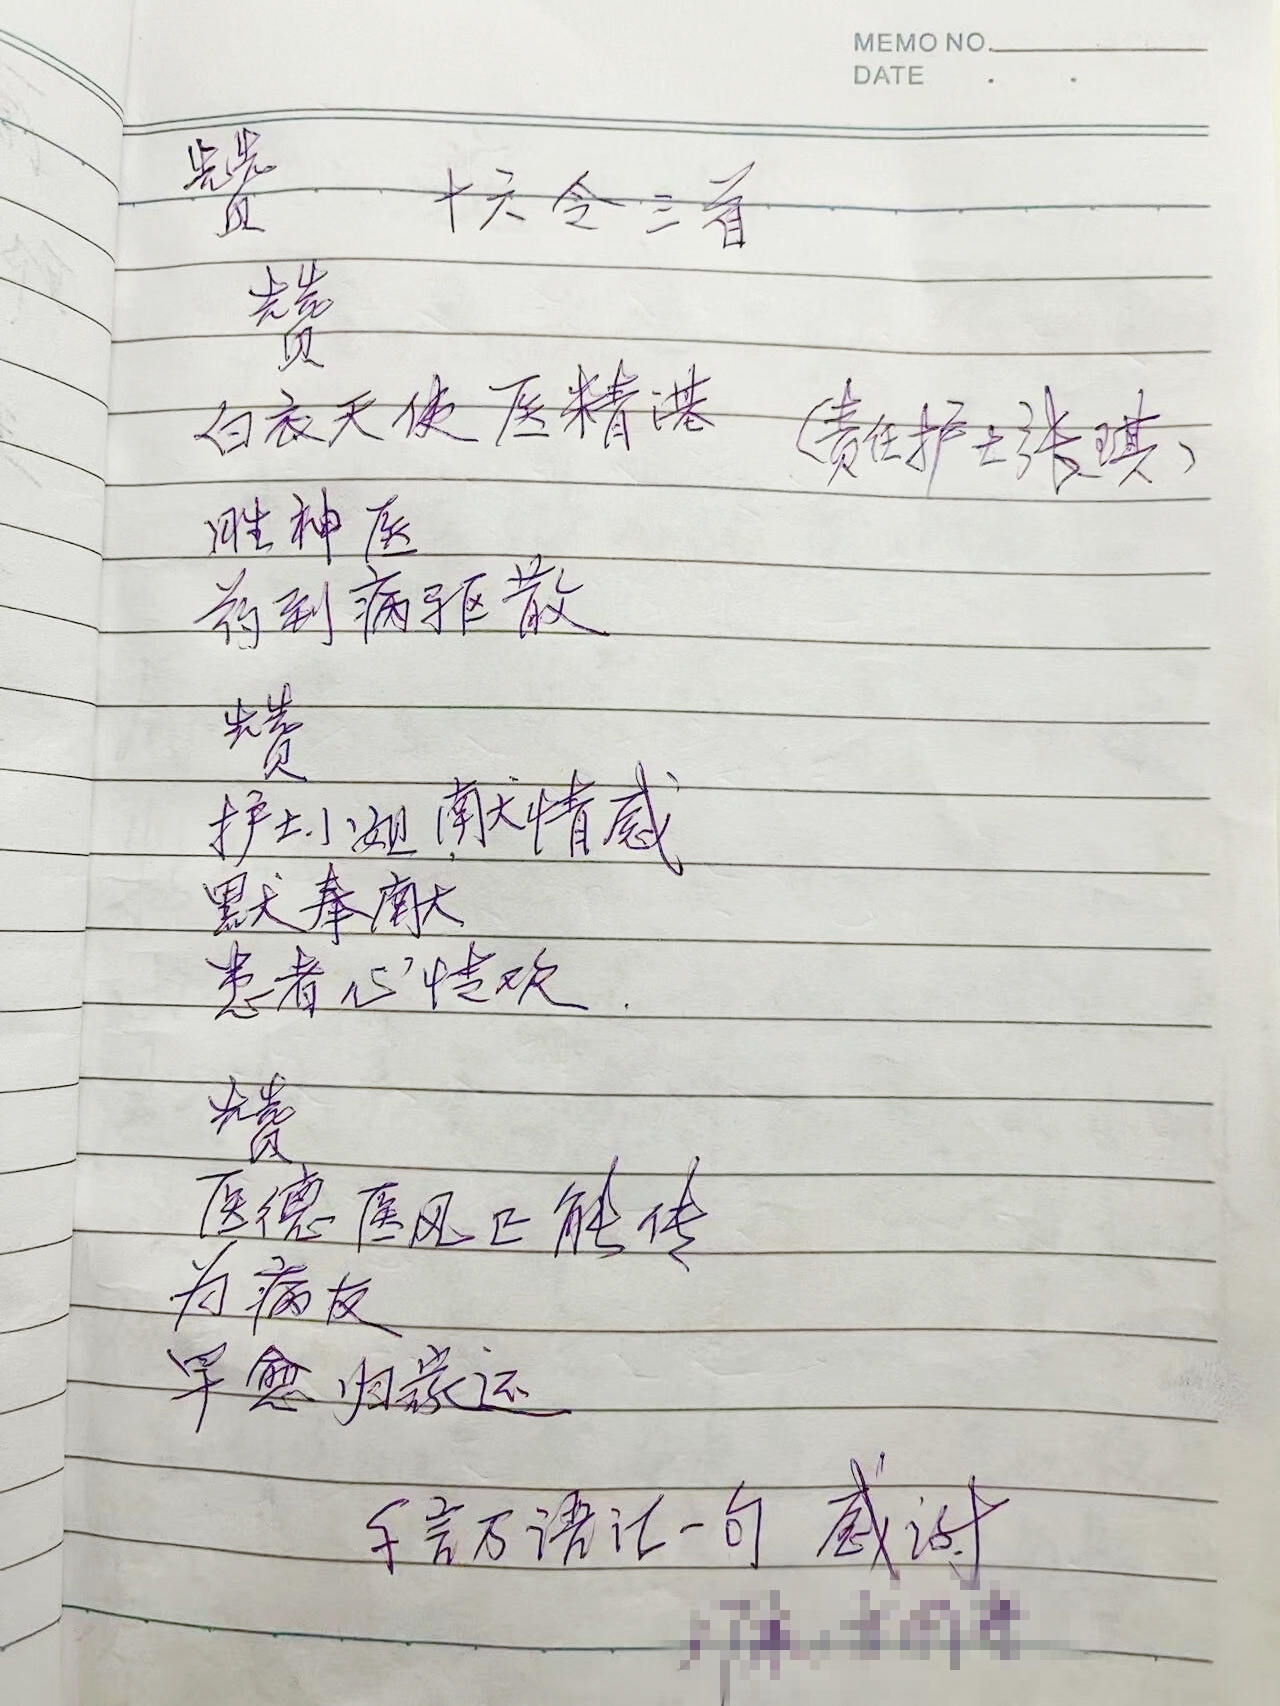 MEMO NO.
DATE . .
赞 十六令三首
赞
白衣天使医精港 (责任护士张琪)
胜神医
药到病驱散
赞
护士小姐献情感
默奉献
患者心情欢.
赞
医德医风已能传
为病友
早愈归家还
千言万语汇一句 感谢